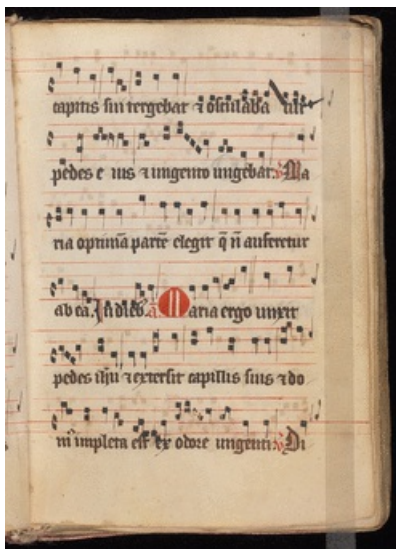 capitis sui tergebat ⁊ osculaba tur
pedes e ius ⁊ ungento ungebat. v Ma
ria optimā partē elegit q̄ n̄ auferetur
ab ea. In dieb. a Maria ergo unxit
pedes ihu ⁊ extersit capillis suis ⁊ do
m' impleta est ex odore ungenti. v Di